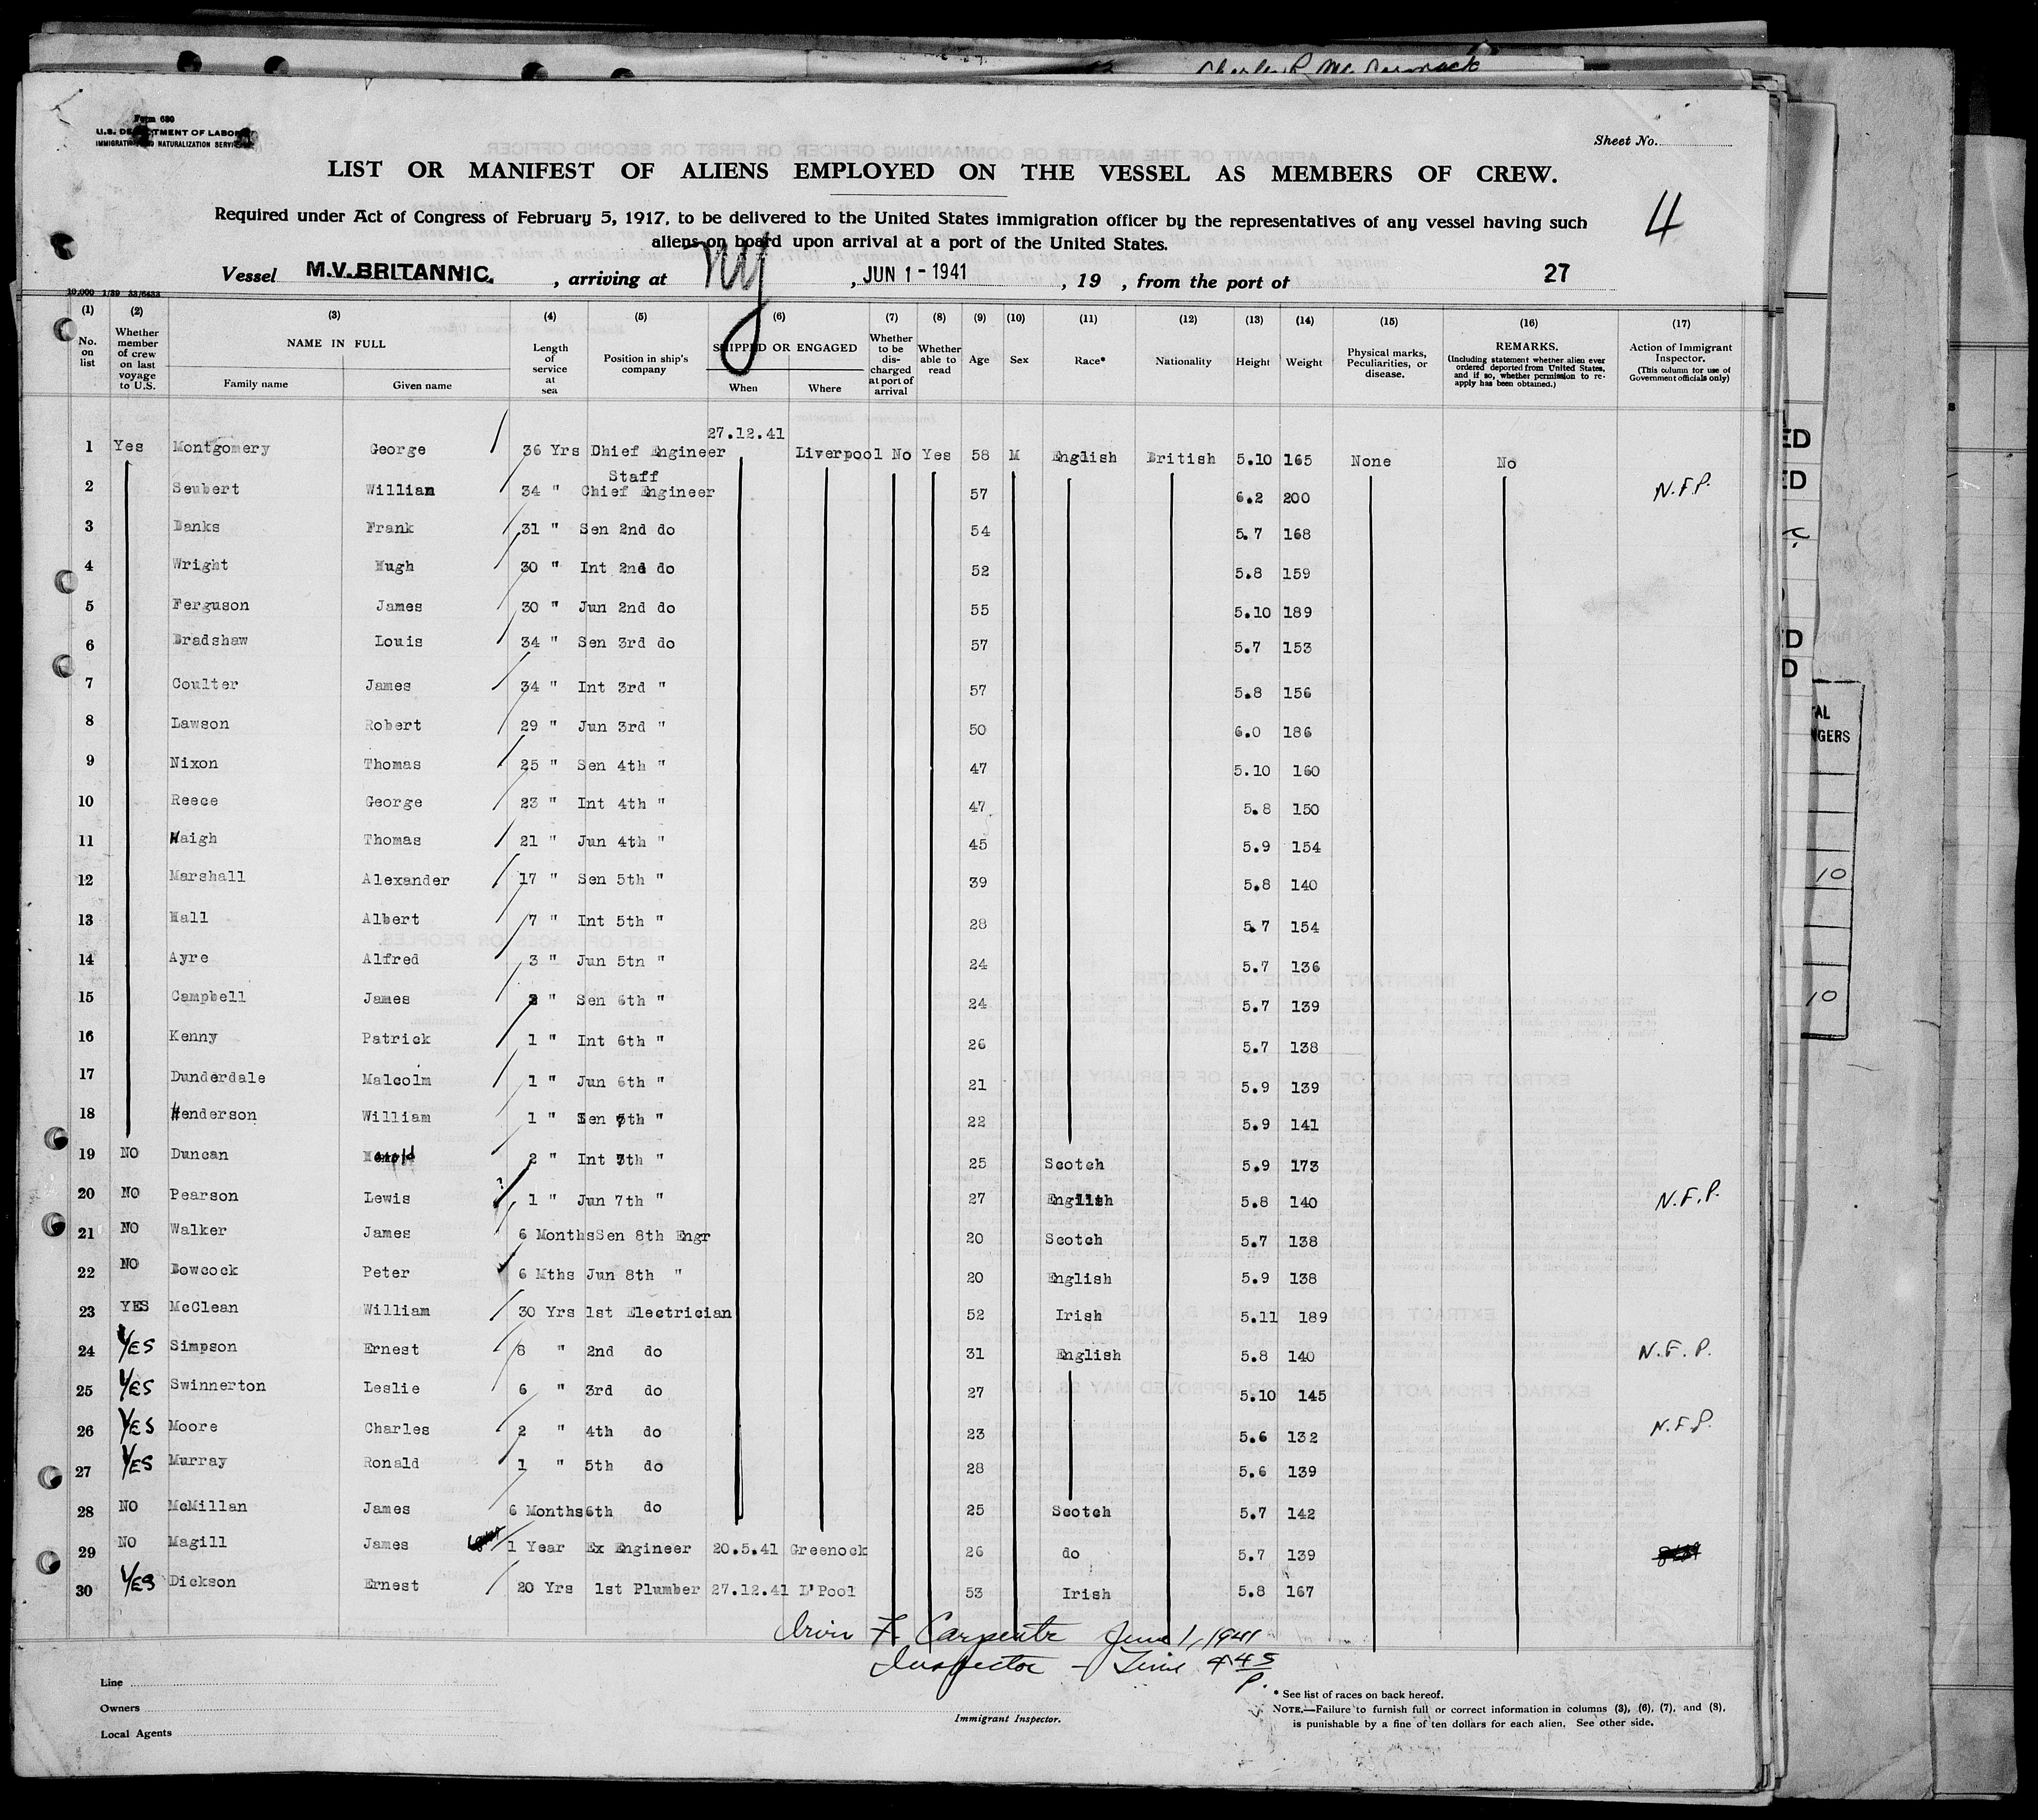 Charles P. McCormack
Form 680
U.S. DEPARTMENT OF LABOR
IMMIGRATION AND NATURALIZATION SERVICE
Sheet No.
LIST OR MANIFEST OF ALIENS EMPLOYED ON THE VESSEL AS MEMBERS OF CREW.
4
Required under Act of Congress of February 5, 1917, to be delivered to the United States immigration officer by the representatives of any vessel having such
aliens on board upon arrival at a port of the United States.
Vessel M.V.BRITANNIC. , arriving at NY , JUN 1 - 1941 , 19 , from the port of 27
10,000 1/39
(1) (2) (3) (4) (5) (6) (7) (8) (9) (10) (11) (12) (13) (14) (15) (16) (17)
No. on list Whether member of crew on last voyage to U.S. NAME IN FULL Family name Given name Length of service at sea Position in ship's company SHIPPED OR ENGAGED When Where Whether to be discharged at port of arrival Whether able to read Age Sex Race* Nationality Height Weight Physical marks, Peculiarities, or disease. REMARKS. (Including statement whether alien ever ordered deported from United States, and if so, whether permission to re-apply has been obtained.) Action of Immigrant Inspector. (This column for use of Government officials only)
27.12.41
1 Yes Montgomery George 36 Yrs Chief Engineer Liverpool No Yes 58 M English British 5.10 165 None No
Staff
2 Seubert William 34 " Chief Engineer 57 6.2 200 N.F.P.
3 Banks Frank 31 " Sen 2nd do 54 5.7 168
4 Wright Hugh 30 " Int 2nd do 52 5.8 159
5 Ferguson James 30 " Jun 2nd do 55 5.10 189
6 Bradshaw Louis 34 " Sen 3rd do 57 5.7 153
7 Coulter James 34 " Int 3rd " 57 5.8 156
8 Lawson Robert 29 " Jun 3rd " 50 6.0 186
9 Nixon Thomas 25 " Sen 4th " 47 5.10 160
10 Reece George 23 " Int 4th " 47 5.8 150
11 Haigh Thomas 21 " Jun 4th " 45 5.9 154
12 Marshall Alexander 17 " Sen 5th " 39 5.8 140
13 Hall Albert 7 " Int 5th " 28 5.7 154
14 Ayre Alfred 3 " Jun 5tn " 24 5.7 136
15 Campbell James 2 " Sen 6th " 24 5.7 139
16 Kenny Patrick 1 " Int 6th " 26 5.7 138
17 Dunderdale Malcolm 1 " Jun 6th " 21 5.9 139
18 Henderson William 1 " Sen 7th " 22 5.9 141
19 NO Duncan 2 " Int 7th " 25 Scotch 5.9 173
20 NO Pearson Lewis ? 1 " Jun 7th " 27 English 5.8 140 N.F.P.
21 NO Walker James 6 Months Sen 8th Engr 20 Scotch 5.7 138
22 NO Bowcock Peter 6 Mths Jun 8th " 20 English 5.9 138
23 YES McClean William 30 Yrs 1st Electrician 52 Irish 5.11 189
24 YES Simpson Ernest 8 " 2nd do 31 English 5.8 140 N.F.P.
25 YES Swinnerton Leslie 6 " 3rd do 27 5.10 145
26 YES Moore Charles 2 " 4th do 23 5.6 132 N.F.P.
27 YES Murray Ronald 1 " 5th do 28 5.6 139
28 NO McMillan James 6 Months 6th do 25 Scotch 5.7 142
29 NO Magill James 1 Year Ex Engineer 20.5.41 Greenock 26 do 5.7 139
30 YES Dickson Ernest 20 Yrs 1st Plumber 27.12.41 L'Pool 53 Irish 5.8 167
Irvin F. Carpenter June 1, 1941
Inspector - Time 4 45 P.
Line
Owners
Local Agents
Immigrant Inspector.
* See list of races on back hereof.
NOTE.—Failure to furnish full or correct information in columns (3), (6), (7), and (8),
is punishable by a fine of ten dollars for each alien. See other side.
ED
ED
ED
D
10
10